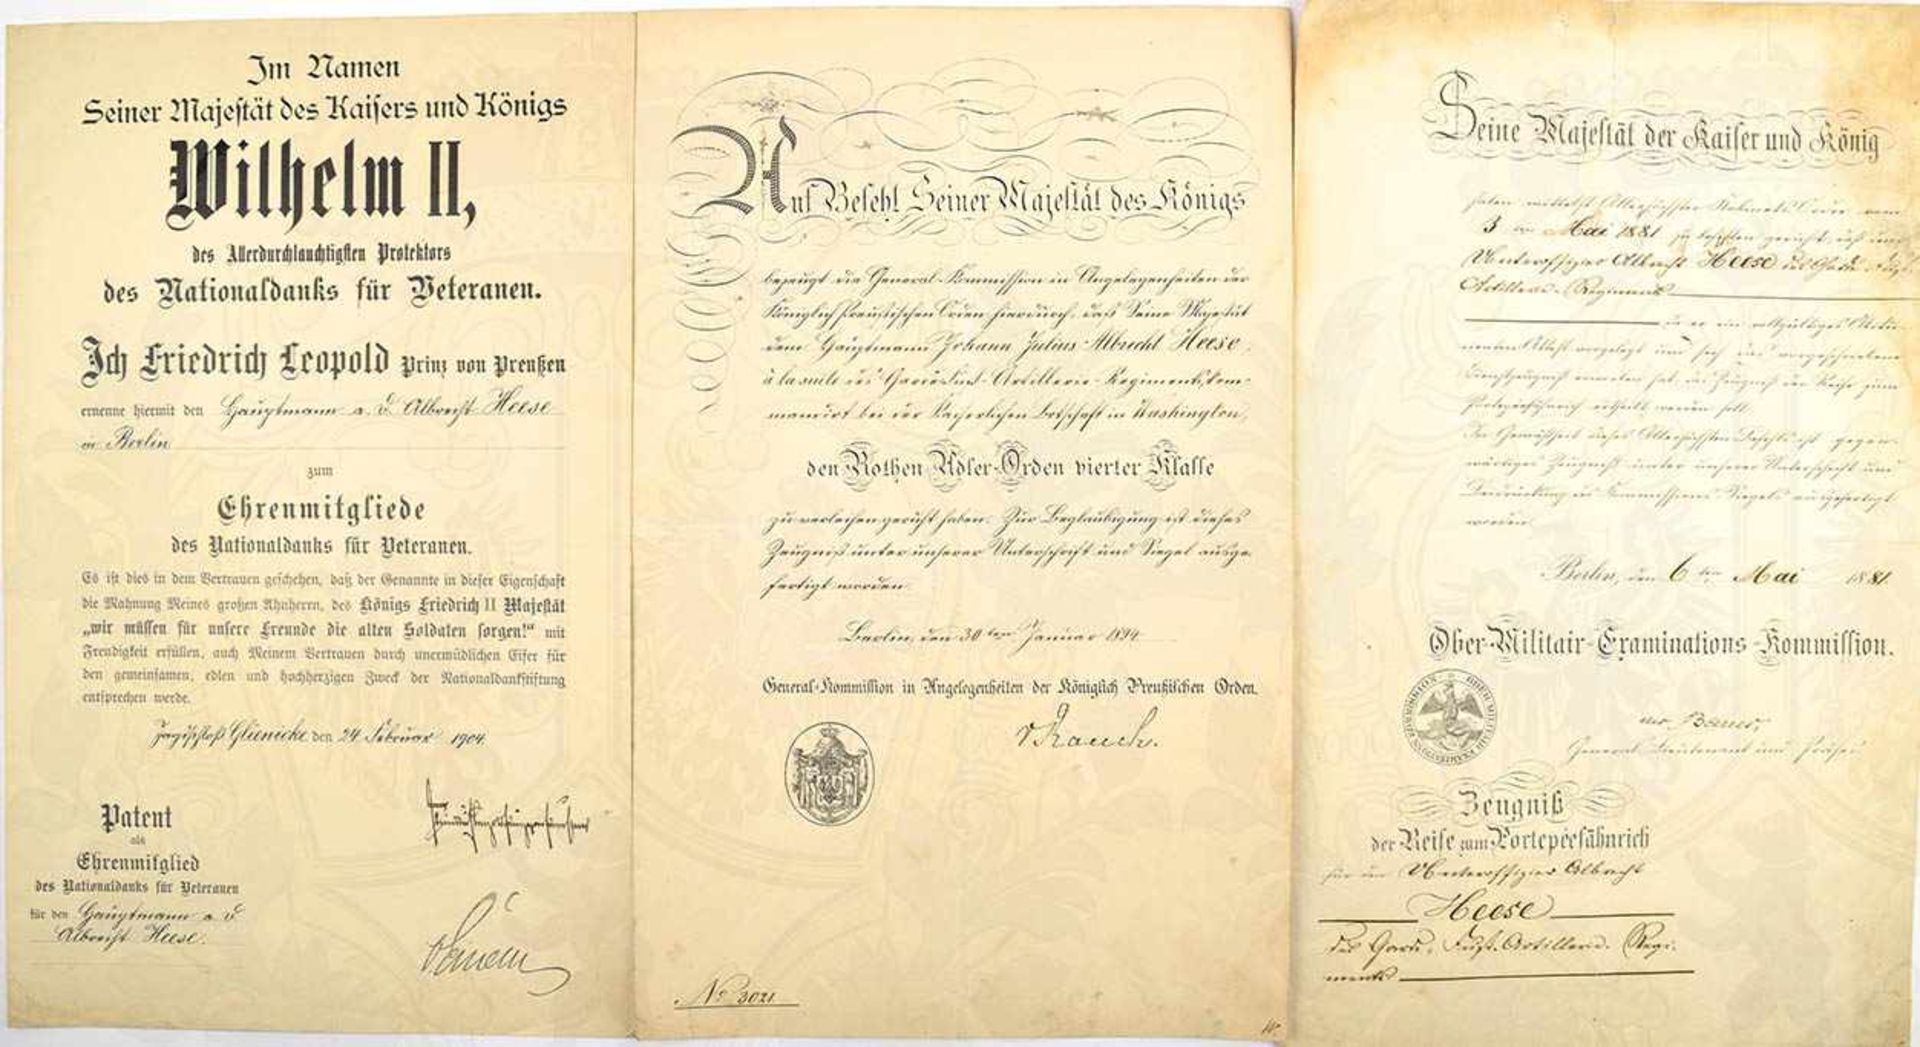 Im Namen
Seiner Majestät des Kaisers und Königs
Wilhelm II,
des Allerdurchlauchtigsten Protektors
des Nationaldanks für Veteranen.
Ich Friedrich Leopold Prinz von Preußen
ernenne hiermit den Hauptmann a. D. Albrecht Heese
in Berlin
zum
Ehrenmitgliede
des Nationaldanks für Veteranen.
Es ist dies in dem Vertrauen geschehen, daß der Genannte in dieser Eigenschaft
die Mahnung Meines großen Ahnherrn, des Königs Friedrich II Majestät
„wir müssen für unsere Freunde die alten Soldaten sorgen!" mit
Freudigkeit erfüllen, auch Meinem Vertrauen durch unermüdlichen Eifer für
den gemeinsamen, edlen und hochherzigen Zweck der Nationaldankstiftung
entsprechen werde.
Jagdschloß Glienicke den 24 Februar 1904
Patent
als
Ehrenmitglied
des Nationaldanks für Veteranen
für den Hauptmann a. D
Albrecht Heese.
Auf Befehl Seiner Majestät des Königs
bezeugt die General-Kommission in Angelegenheiten der
Königlich Preußischen Orden hierdurch, daß Seine Majestät
dem Hauptmann Johann Julius Albrecht Heese,
à la suite des Garde-Fuß-Artillerie-Regiments, kom-
mandirt bei der Kaiserlichen Botschaft in Washington,
den Rothen Adler-Orden vierter Klasse
zu verleihen geruht haben. Zur Beglaubigung ist dieses
Zeugniß unter unserer Unterschrift und Siegel ausge-
fertigt worden.
Berlin, den 30ten Januar 1894
General-Kommission in Angelegenheiten der Königlich Preußischen Orden.
v Rauch.
No 3021
Seine Majestät der Kaiser und König
haben mittelst Allerhöchster Kabinets Ordre vom
3 ten Mai 1881 zu befehlen geruht, daß dem
Unteroffizier Albrecht Heese des Garde Fuß-
Artillerie-Regiments
da er ein vollgültiges
vorgelegt und sich das vorgeschriebene
Dienstzeugniß erworben hat, das Zeugniß der Reife zum
Portepeefähnrich ertheilt werden soll.
In Gemäßheit dieses Allerhöchsten Befehls ist gegen-
wärtiges Zeugniß unter unserer Unterschrift und
Beidrückung des Kommissions Siegels ausgefertigt
worden.
Berlin, den 6 ten Mai 1881.
Ober-Militair-Examinations-Kommission.
General Lieutenant und Präses
Zeugniß
der Reife zum Portepéefähnrich
für den Unteroffizier Albrecht
Heese
des Garde-Fuß-Artillerie-Regi-
ments